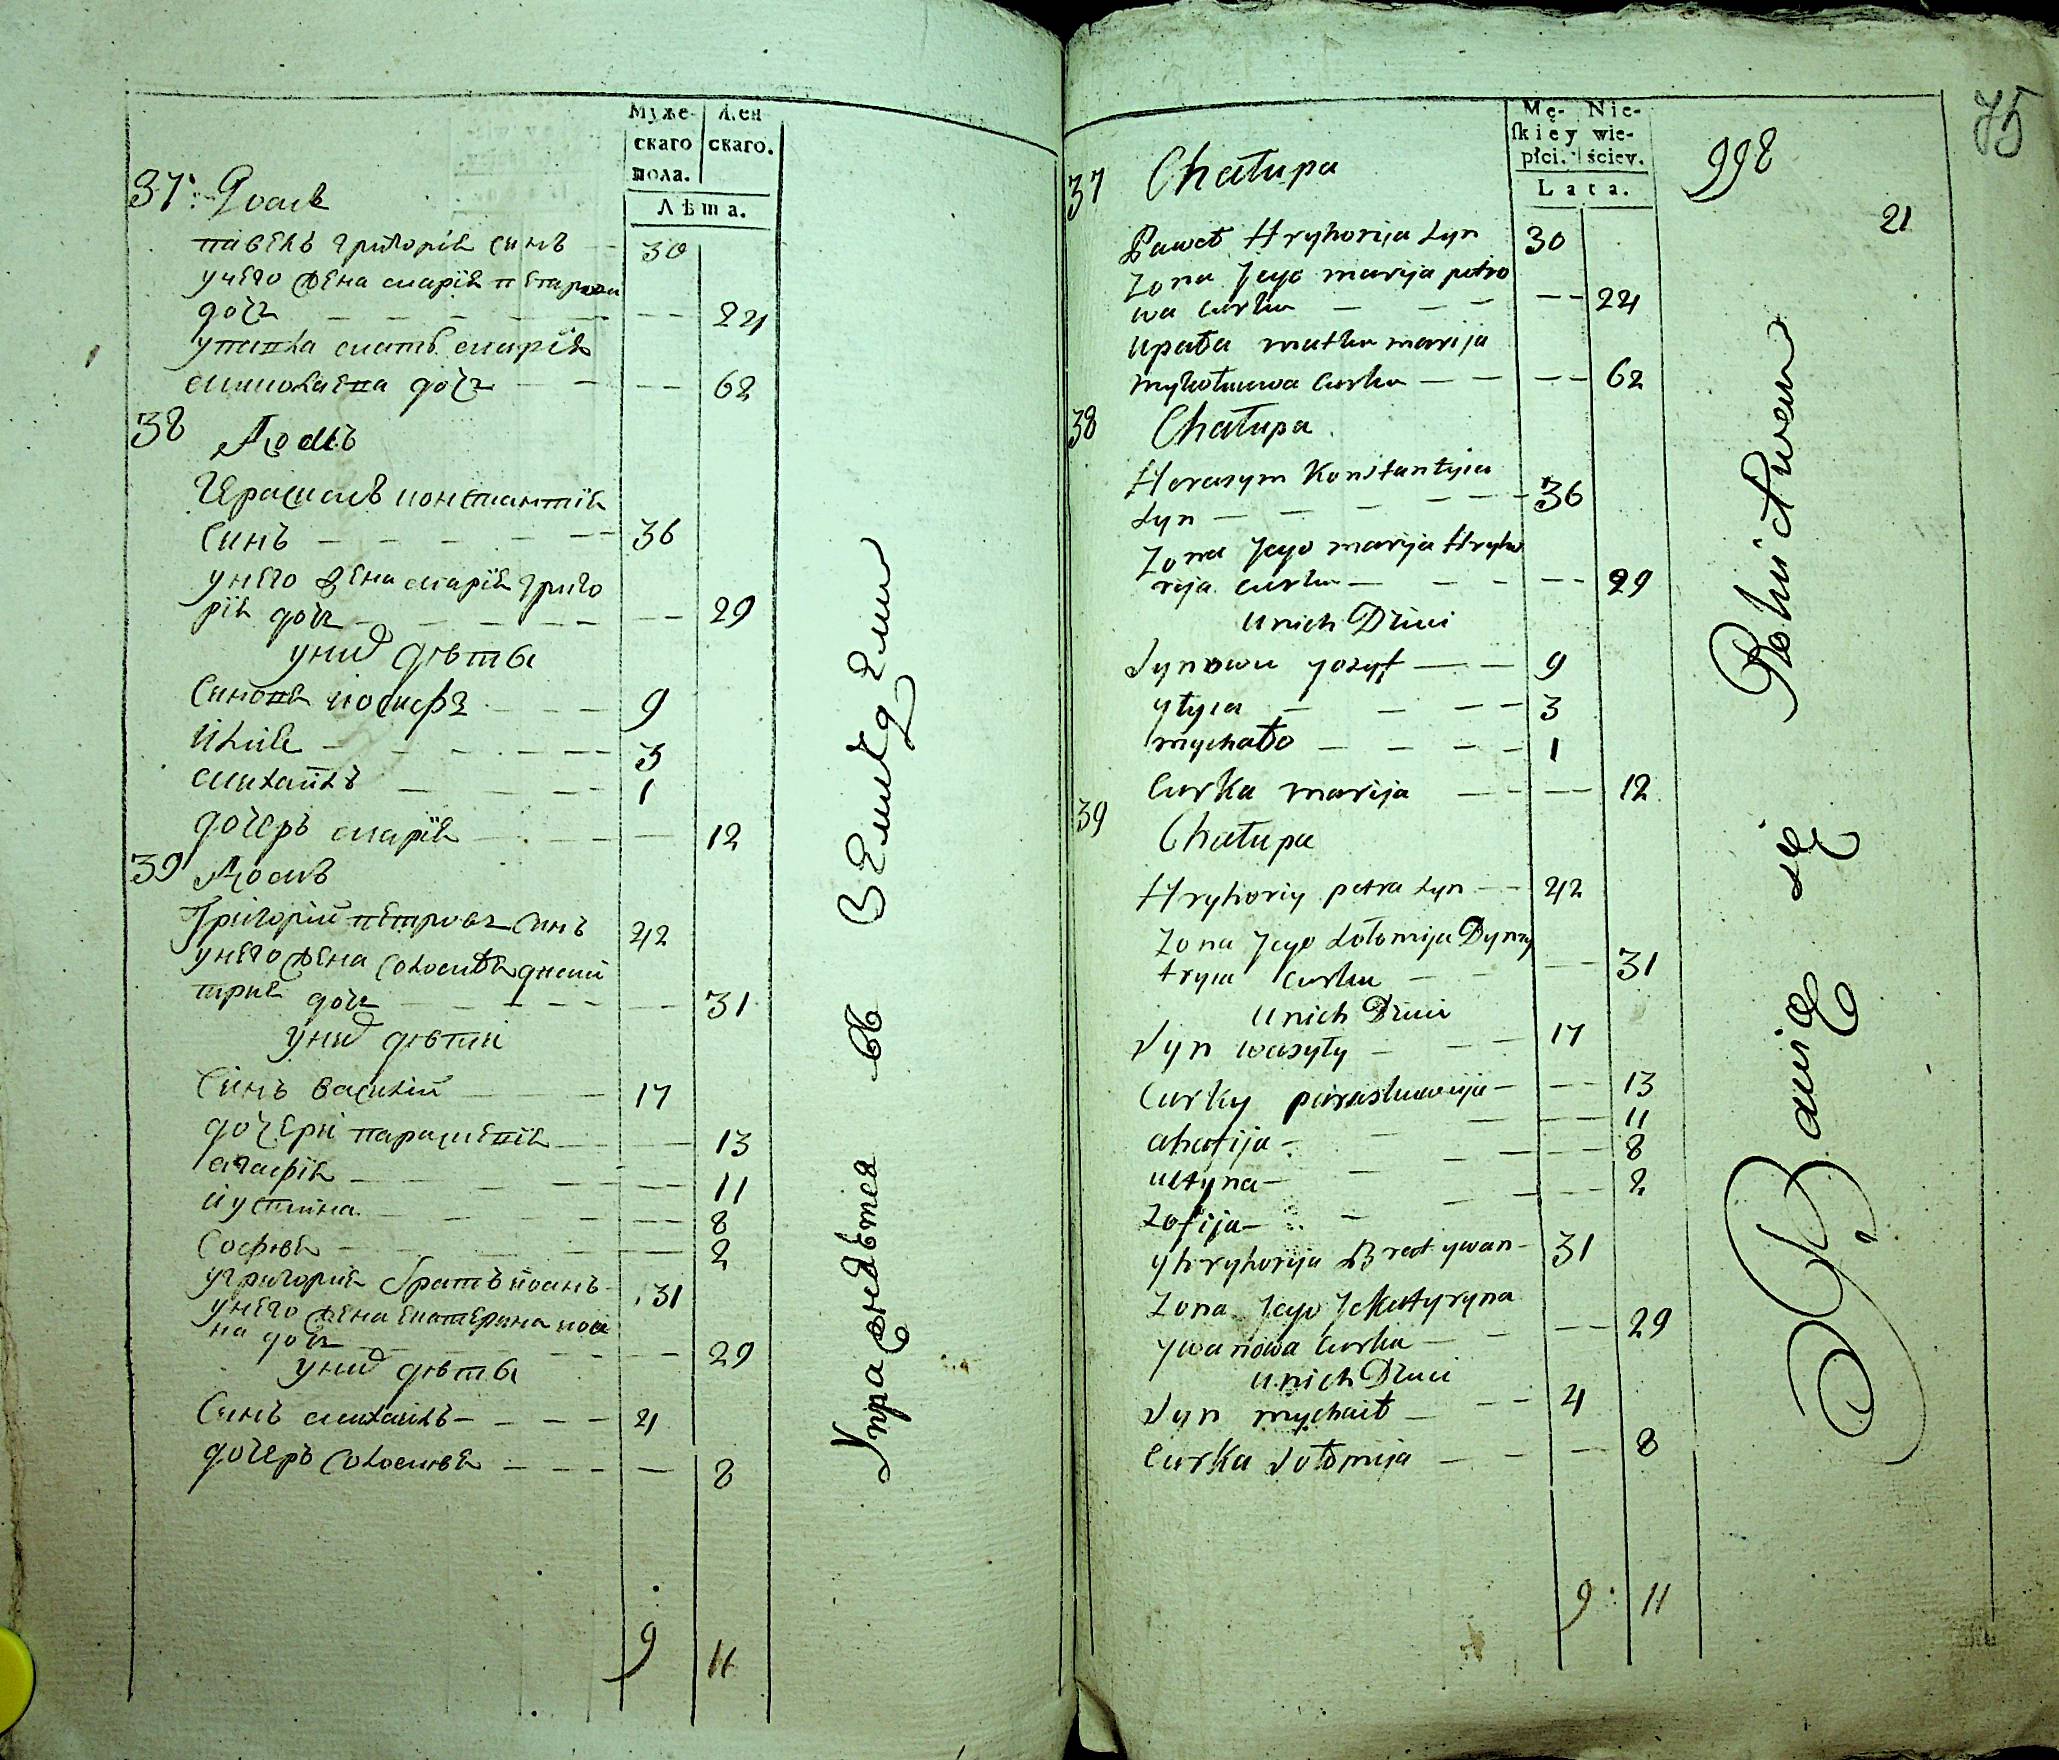 Муже-
скаго
пола.
Жен
скаго.
Лѣта.
37. Домъ
павелъ григорія синъ 30
унего жена марія петрова
дочь 24
упавла мать марія
миколаева дочь 62
38 Домъ
Герасимъ константія
Синъ 36
унего жена марія григо
рія дочь 29
уних дѣти
Синовя иосифъ 9
илія 3
михаилъ 1
дочеръ марія 12
39 Домъ
Григорій петровъ Синъ 42
унего жена Соломія дмыи
трия дочь 31
уних дѣти
Синъ василій 17
дочери параскевія 13
агафія 11
иустина 8
Софія 2
угригорія братъ иоанъ 31
унего жена екатерина иоа
на дочь 29
уних дѣти
Синъ михаилъ 4
дочеръ Соломія 8
9 11
Упражняется въ Земледелии
Mę-
skiey
płci.
Nie-
wie-
ściey.
Lata.
998
75
21
37 Chałupa
Paweł Hryhorija Syn 30
Zona Jego marija petro
wa curka 24
upała matka marija
mykołaiewa curka 62
38 Chałupa
Herasym Konstantyia
Syn 36
Zona Jego marija Hryho
rija curka 29
unich Dzieci
Synowie yozyf 9
ytyia 3
mychało 1
Curka marija 12
39 Chałupa
Hryhoriy petra Syn 42
Zona Jego Sołomija Dymy
tryia curka 31
unich Dzieci
Syn wasyły 17
Curky paraskiewija 13
ahafija 11
ustyna 8
Zofija 2
yhryhorija Brat ywan 31
Zona Jego Jekatyryna
ywanowa curka 29
unich Dzieci
Syn mychaił 4
Curka Sołomija 8
9 11
Bawię się Rolnictwem